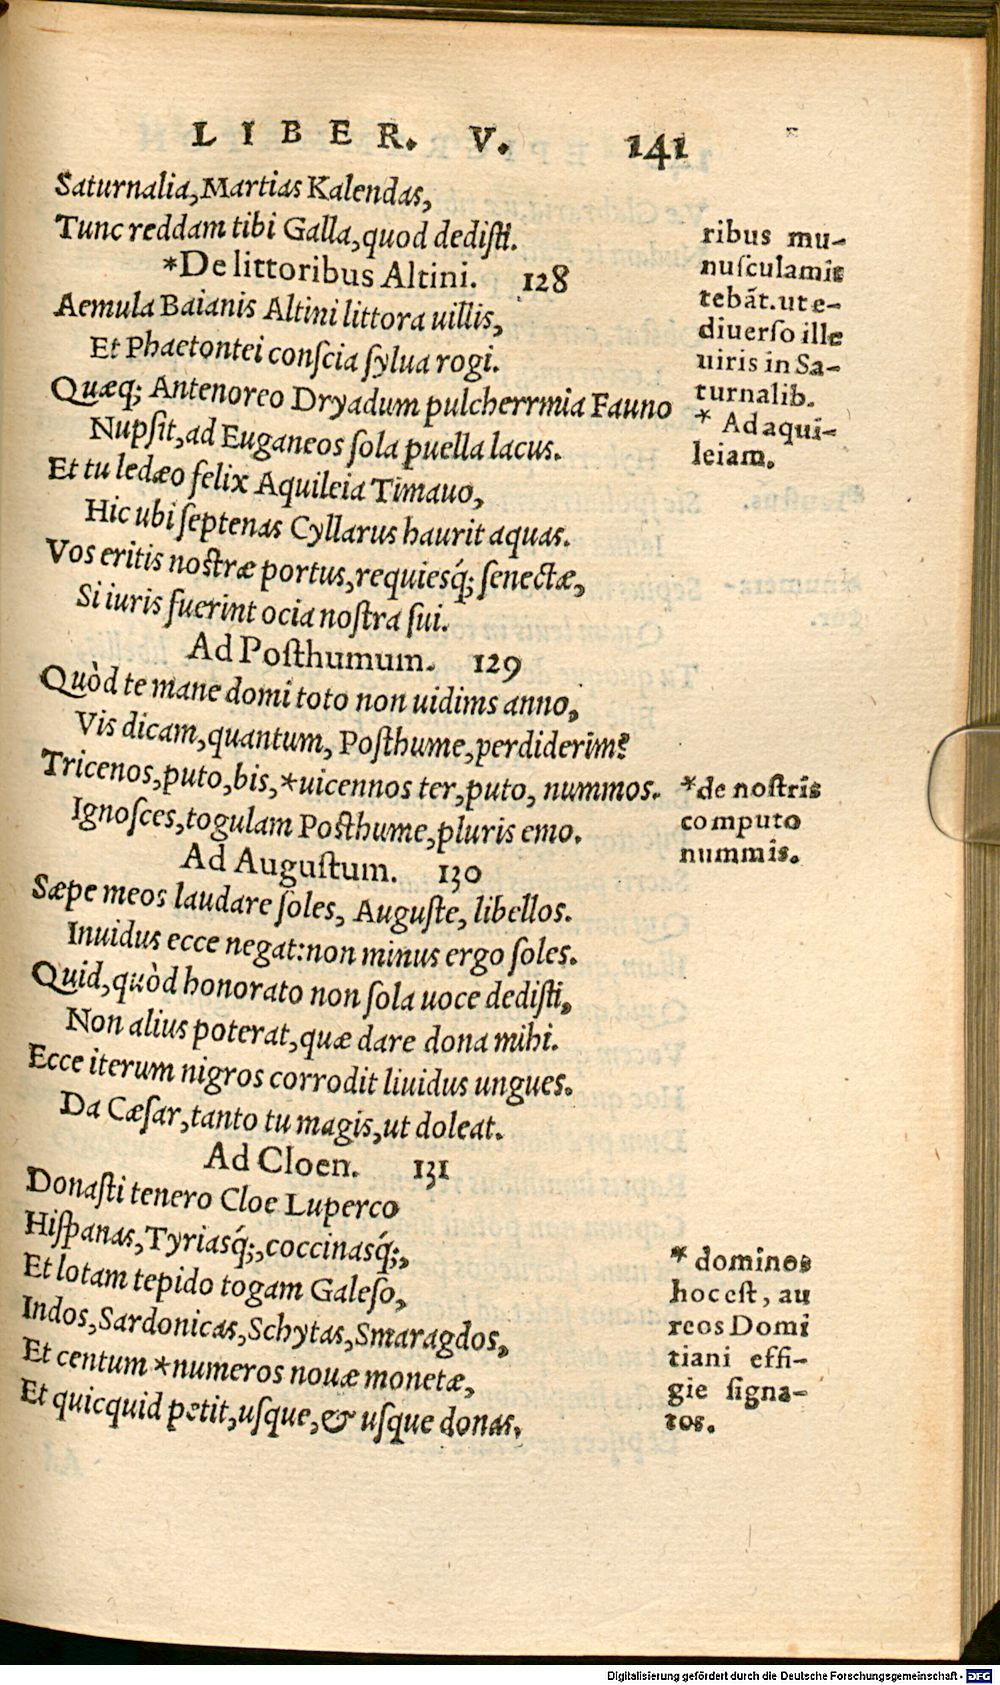 LIBER. V. 141
Saturnalia, Martias Kalendas,
Tunc reddam tibi Galla, quod dedisti.
*De littoribus Altini. 128
Aemula Baianis Altini littora uillis,
Et Phaetontei conscia sylua rogi.
Quæq; Antenoreo Dryadum pulcherrmia Fauno
Nupsit, ad Euganeos sola puella lacus.
Et tu ledæo felix Aquileia Timauo,
Hic ubi septenas Cyllarus haurit aquas.
Vos eritis nostræ portus, requiesq́; senectæ,
Si iuris fuerint ocia nostra sui.
Ad Posthumum. 129
Quòd te mane domi toto non uidims anno,
Vis dicam, quantum, Posthume, perdiderim?
Tricenos, puto, bis, *uicennos ter, puto, nummos.
Ignosces, togulam Posthume, pluris emo.
Ad Augustum. 130
Sæpe meos laudare soles, Auguste, libellos.
Inuidus ecce negat: non minus ergo soles.
Quid, quòd honorato non sola uoce dedisti,
Non alius poterat, quæ dare dona mihi.
Ecce iterum nigros corrodit liuidus ungues.
Da Cæsar, tanto tu magis, ut doleat.
Ad Cloen. 131
Donasti tenero Cloe Luperco
Hispanas, Tyriasq́;, coccinasq́;,
Et lotam tepido togam Galeso,
Indos, Sardonicas, Schytas, Smaragdos,
Et centum *numeros nouæ monetæ,
Et quicquid petit, usque, & usque donas.
ribus mu-
nusculamis
tebãt. ut e-
diuerso ille
uiris in Sa-
turnalib.
* Ad aqui-
leiam.
*de nostris
computo
nummis.
* dominos
hoc est, au
reos Domi
tiani effi-
gie signa-
tos.
Digitalisierung gefördert durch die Deutsche Forschungsgemeinschaft - DFG